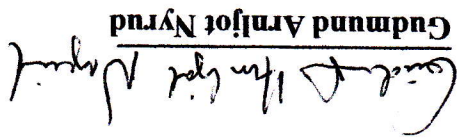 Gudmund Arnljot Nyrud
Gudmund Arnljot Nyrud